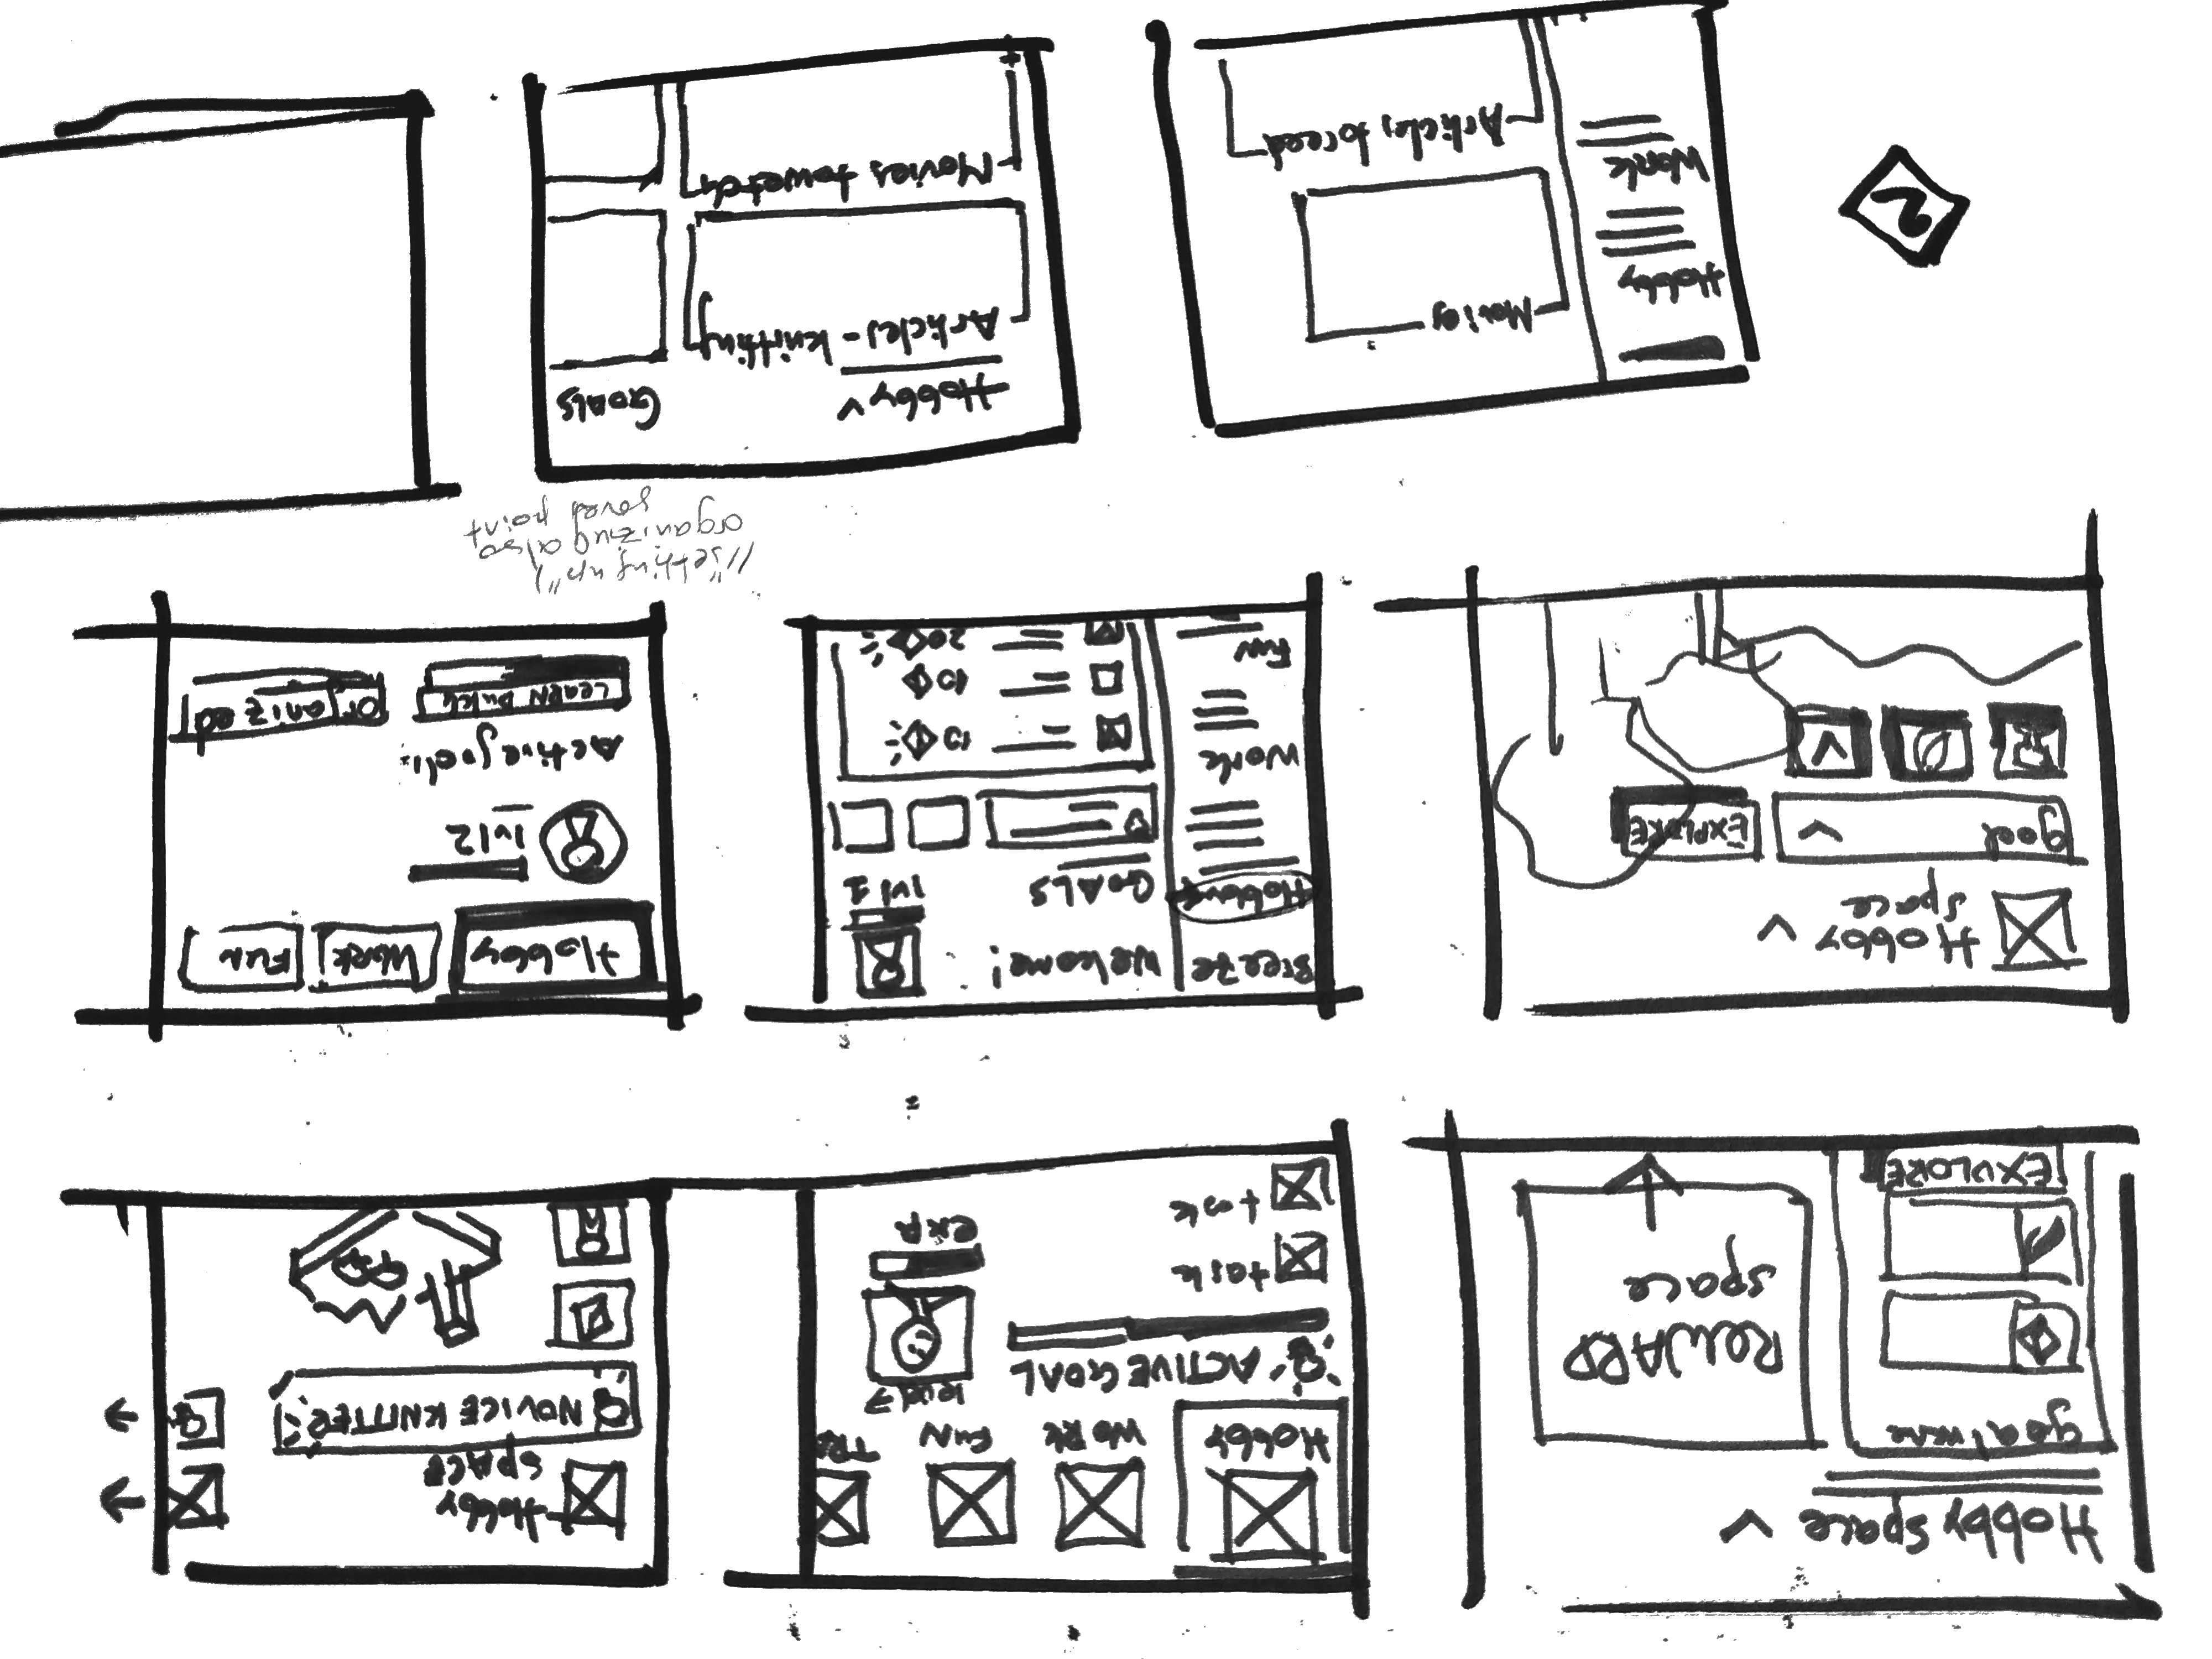 Hobby space
goal name
REWARD
space
EXPLORE
Hobby
WORK
FUN
TRA
ACTIVE GOAL
level 7
task
task
exp
Hobby
SPACE
NOVICE KNITTER
Hobby
space
goal
EXPLORE
Breeze
Welcome!
Hobby
GOALS
lvl 1
Work
10
10
Fun
20
Hobby
Work
FUN
lvl 2
Active goals
LEARN Dutch
organized
//"setting up"/
organizing also
point
2
Hobby
Work
Movies
Articles to read
Hobby
GOALS
Articles - knitting
Movies to watch